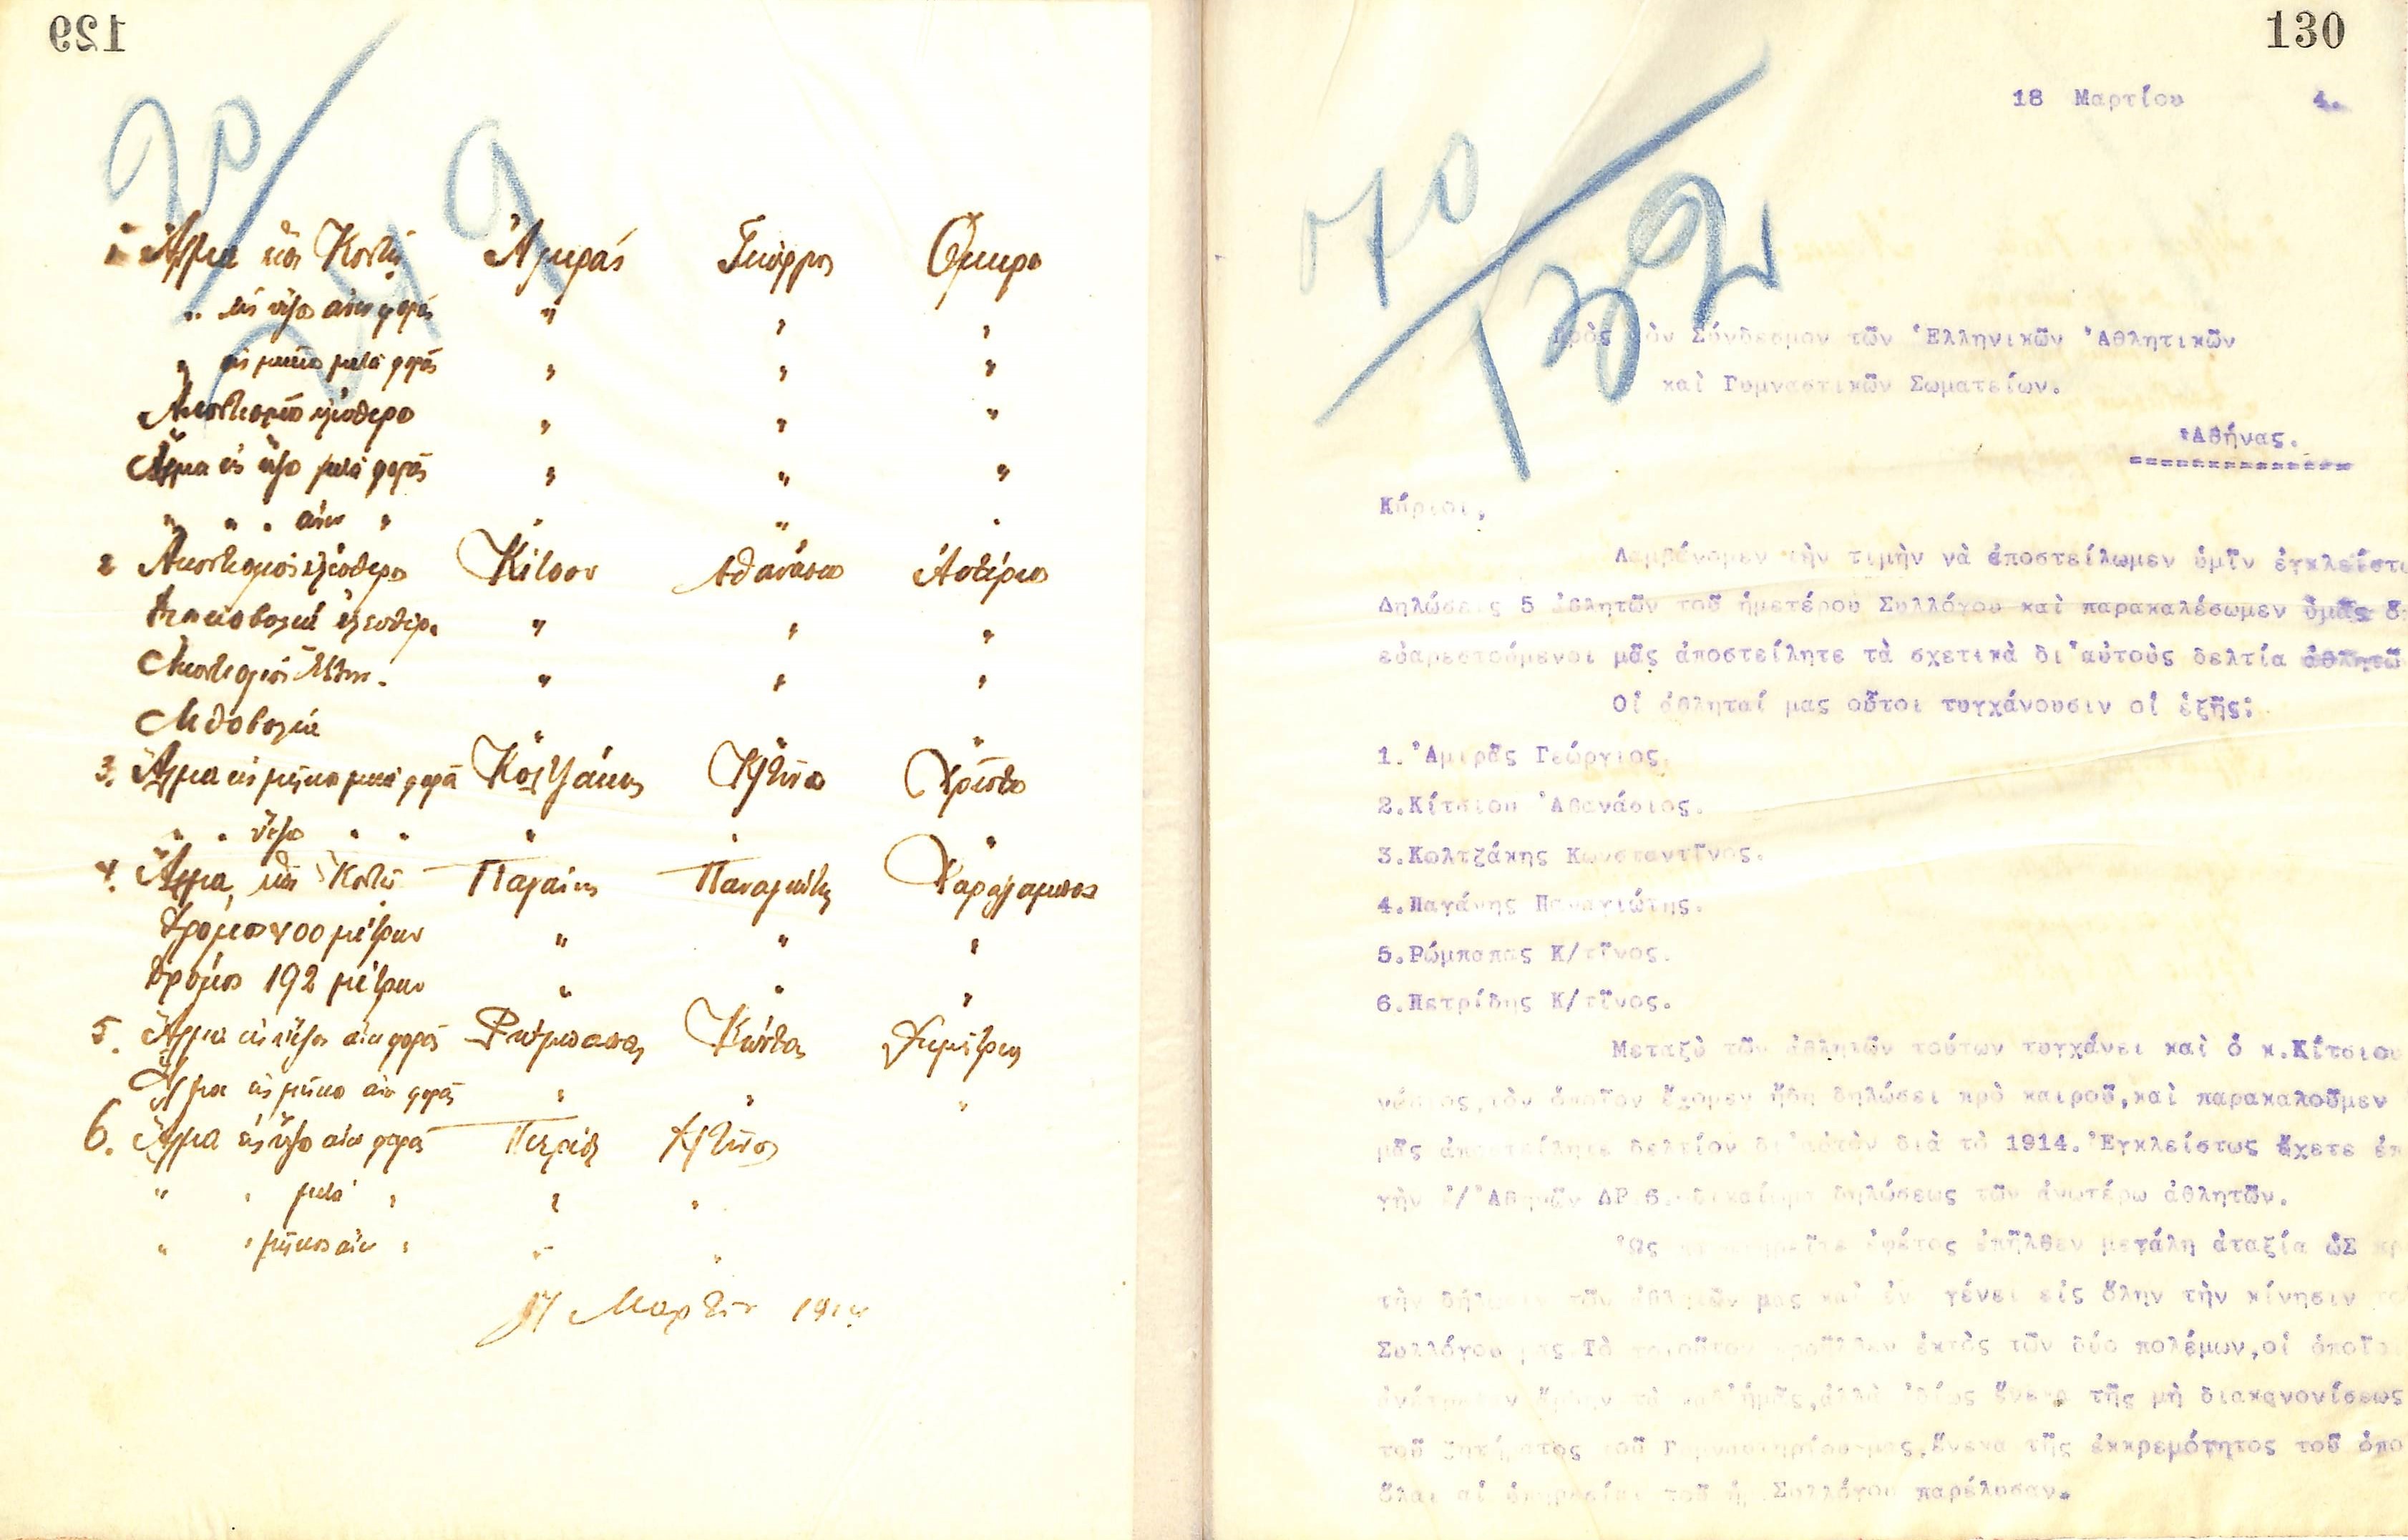 129
1 Ἅλμα ἐπὶ Κοντῷ Ἀμηρᾶς Γεώργιος Ὁμήρου
" εἰς ὕψος ἄνευ φορᾶς " " "
" εἰς μῆκος μετὰ φορᾶς " " "
Ἀκοντισμὸς ἐλεύθερος " " "
Ἅλμα εἰς ὕψος μετὰ φορᾶς " " "
" " " ἄνευ " " " "
2 Ἀκοντισμὸς ἐλεύθερος Κίτσου Ἀθανάσιος Ἀστέριος
Δισκοβολία ἐλευθέρα " " "
Ἀκοντισμὸς Ἑλλην. " " "
Λιθοβολία " " "
3. Ἅλμα εἰς μῆκος μετὰ φορᾶς Κολτζάκης Κ/τῖνος Χρίστο
" " ὕψος " " " " "
4. Ἅλμα ἐπὶ Κοντῷ Παγάνης Παναγιώτης Χαράλαμπος
Δρόμος 400 μέτρων " " "
Δρόμος 192 μέτρων " " "
5. Ἅλμα εἰς ὕψος ἄνευ φορᾶς Ρώμπαπας Κώστας Δημήτριος
Ἅλμα εἰς μῆκος ἄνευ φορᾶς " " "
6. Ἅλμα εἰς ὕψος ἄνευ φορᾶς Πετρίδης Κ/τῖνος
" " μετὰ " " "
" " μῆκος ἄνευ " " "
17 Μαρτίου 1914
130
18 Μαρτίου 4.
Πρὸς τὸν Σύνδεσμον τῶν Ἑλληνικῶν Ἀθλητικῶν
καὶ Γυμναστικῶν Σωματείων.
Ἀθήνας.
Κύριοι,
Λαμβάνομεν τὴν τιμὴν νὰ ἀποστείλωμεν ὑμῖν ἐγκλείστω
Δηλώσεις 5 ἀθλητῶν τοῦ ἡμετέρου Συλλόγου καὶ παρακαλέσωμεν ὑμᾶς ὅ
εὐαρεστούμενοι μᾶς ἀποστείλητε τὰ σχετικὰ δι'αὐτοὺς δελτία ἀθλητῶ
Οἱ ἀθληταί μας οὗτοι τυγχάνουσιν οἱ ἑξῆς:
1. Ἀμιρᾶς Γεώργιος.
2.Κίτσιου Ἀθανάσιος.
3.Κολτζάκης Κωνσταντῖνος.
4.Παγάνης Παναγιώτης.
5.Ρώμπαπας Κ/τῖνος.
6.Πετρίδης Κ/τῖνος.
Μεταξὺ τῶν ἀθλητῶν τούτων τυγχάνει καὶ ὁ κ.Κίτσιου
τὸν ὁποῖον ἔχομεν ἤδη δηλώσει πρὸ καιροῦ,καὶ παρακαλοῦμεν
μᾶς ἀποστείλητε δελτίον δι'αὐτὸν διὰ τὸ 1914.Ἐγκλείστως ἔχετε ἐπ
γὴν ἐ/Ἀθηνῶν ΔΡ 6. δικαίωμα δηλώσεως τῶν ἀνωτέρω ἀθλητῶν.
Ὡς παρατηρεῖτε ἐφέτος ἐπῆλθεν μεγάλη ἀταξία ὡΣ πρ
τὴν δήλωσιν τῶν ἀθλητῶν μας καὶ ἐν γένει εἰς ὅλην τὴν κίνησιν το
Συλλόγου μας Τὸ τοιοῦτον προῆλθεν ἐκτὸς τῶν δύο πολέμων,οἱ ὁποῖοι
ἀνέτρεψαν ἄρδην τὰ καθ'ἡμᾶς,ἀλλὰ ἰδίως ἕνεκα τῆς μὴ διακανονίσεως
τοῦ ζητήματος τοῦ Γυμναστηρίου μας,ἕνεκα τῆς ἐκκρεμότητος τοῦ ὁπο
ὅλαι αἱ ὑπηρεσίαι τοῦ ἡ. Συλλόγου παρέλυσαν.